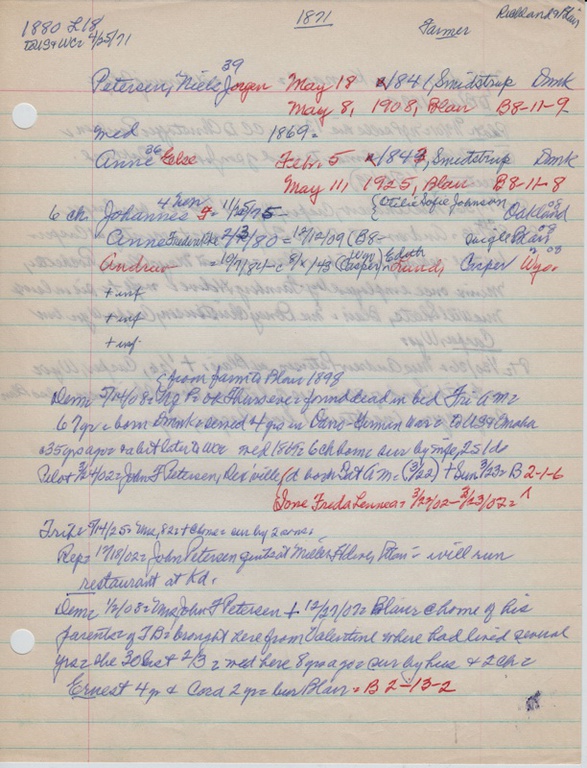 1880 L18 1871 Farmer Richland & Blair
to US & WC = 4/25/71
39
Petersen, Niels Jorgen May 18 x/1841, Smidstrup Dmk
May 8, 1908, Blair B8-11-9
med 1869 =
36
Anne Else Feb. 5 x/1843, Smidstrup Dmk
May 11, 1925, Blair B8-11-8
6 ch. Johannes F = 11/25/75 - {Otilie Sofie Johnson Oakland
Anne 2/3/80 = 12/12/09 (B8- single Blair 08
Andrew = 10/7/84 - c 8/x/43 (Casper) Wyo Edith Lund; Casper Wyo. 08
+ inf
+ inf
+ inf
{from farm to Blair 1898
Dem = 5/14/08 = found dead in bed Fri A M =
67 yr = born Dmk = served 4 yrs in Dano-German war = to US & Omaha
35 yrs ago & a bit later to WC = med 1869 = 6 ch home sur by wife, 2 s 1 d
Pilot 3/26/02 = John F Petersen, (d born Sat A M = (3/22) + Sun 3/23 = B 2-1-6
Freda Lennea = 3/22/02 - 3/23/02 = ^
5/14/25 = Mrs, 82 = + home = sur by 2 sons.
Rep = 12/18/02 = John Petersen quits at = will run
restaurant at Kd.
Dem = 1/2/08 = Mrs John F Petersen + 12/27/07 = Blair @ home of his
parents of TB = brought here from Valentine where had lived several
yrs = she 30 last 2/3 = med here 8 yrs ago = sur by hus & 2 ch =
Ernest 4 yr & Cora 2 yr = bur Blair = B 2-13-2